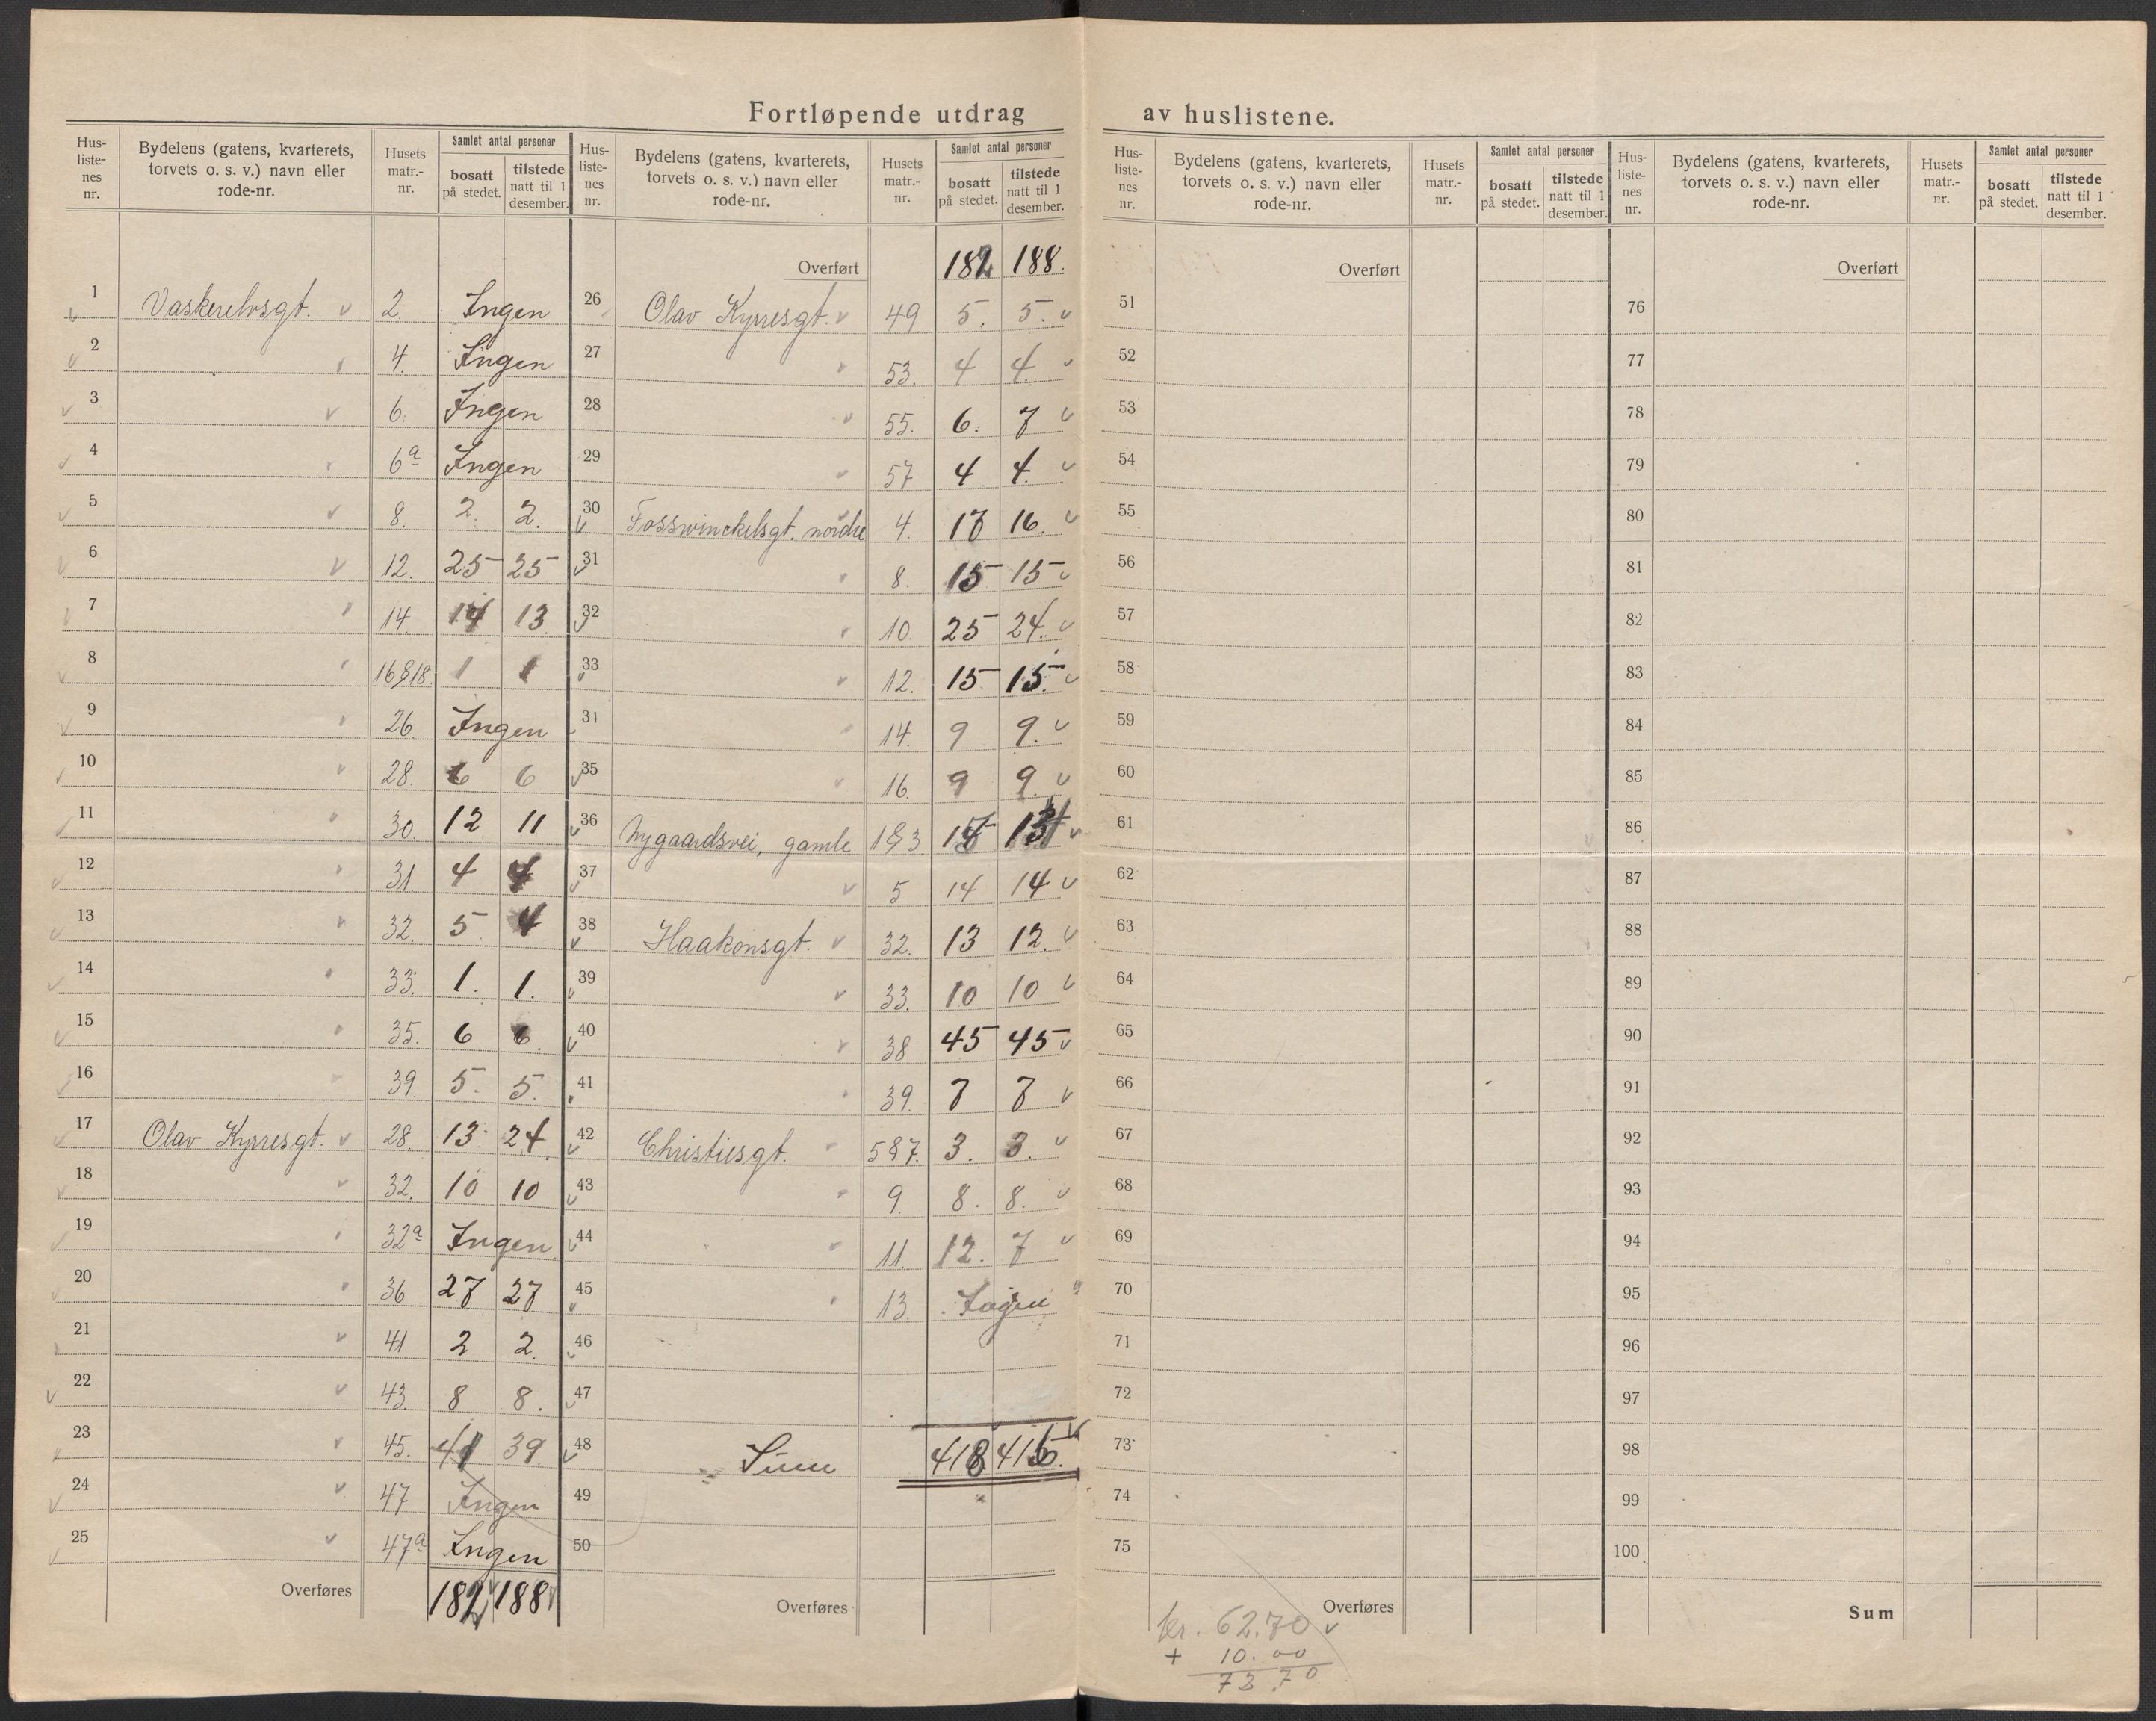 Fortløpende utdrag av huslistene.
Hus-liste-nes nr. | Bydelens (gatens, kvarterets, torvets o. s. v.) navn eller rode-nr. | Husets matr.-nr. | Samlet antal personer | bosatt på stedet. | tilstede natt til 1 desember.
1 Vaskerelvsgt. 2 Ingen
2 " 4. Ingen
3 " 6. Ingen
4 " 6a Ingen
5 " 8. 2. 2.
6 " 12. 25 25
7 " 14. 14 13
8 " 16&18. 1 1
9 " 26. Ingen
10 " 28. 6 6
11 " 30. 12 11
12 " 31 4 4
13 " 32. 5 4
14 " 33. 1. 1.
15 " 35. 6 6.
16 " 39. 5. 5.
17 Olav Kyrresgt. 28. 13 24.
18 " 32. 10 10
19 " 32a Ingen
20 " 36 27 27
21 " 41 2 2.
22 " 43. 8 8.
23 " 45. 41 39
24 " 47 Ingen
25 " 47a Ingen
Overføres 182 188
Hus-liste-nes nr. | Bydelens (gatens, kvarterets, torvets o. s. v.) navn eller rode-nr. | Husets matr.-nr. | Samlet antal personer | bosatt på stedet. | tilstede natt til 1 desember.
Overført 182 188.
26 Olav Kyrresgt. 49 5. 5.
27 " 53. 4 4
28 " 55. 6. 7
29 " 57 4 4.
30 Fosswinckelsgt. nordre 4. 17 16.
31 " 8. 15 15
32 " 10. 25 24.
33 " 12. 15 15.
34 " 14. 9 9.
35 " 16. 9 9.
36 Nygaardsvei, gamle 1&3
37 " 5 14 14
38 Haakonsgt. 32. 13 12.
39 " 33. 10 10
40 " 38 45 45
41 " 39. 7 7
42 Christiesgt. 5&7. 3. 3.
43 " 9. 8. 8.
44 " 11. 12. 7
45 " 13. Ingen "
46
47
48 Sum 418
49
50
Overføres
Hus-liste-nes nr. | Bydelens (gatens, kvarterets, torvets o. s. v.) navn eller rode-nr. | Husets matr.-nr. | Samlet antal personer | bosatt på stedet. | tilstede natt til 1 desember.
Overført
51
52
53
54
55
56
57
58
59
60
61
62
63
64
65
66
67
68
69
70
71
72
73
74
75
Overføres
kr. 62.70
+ 10.00
Hus-liste-nes nr. | Bydelens (gatens, kvarterets, torvets o. s. v.) navn eller rode-nr. | Husets matr.-nr. | Samlet antal personer | bosatt på stedet. | tilstede natt til 1 desember.
Overført
76
77
78
79
80
81
82
83
84
85
86
87
88
89
90
91
92
93
94
95
96
97
98
99
100
Sum